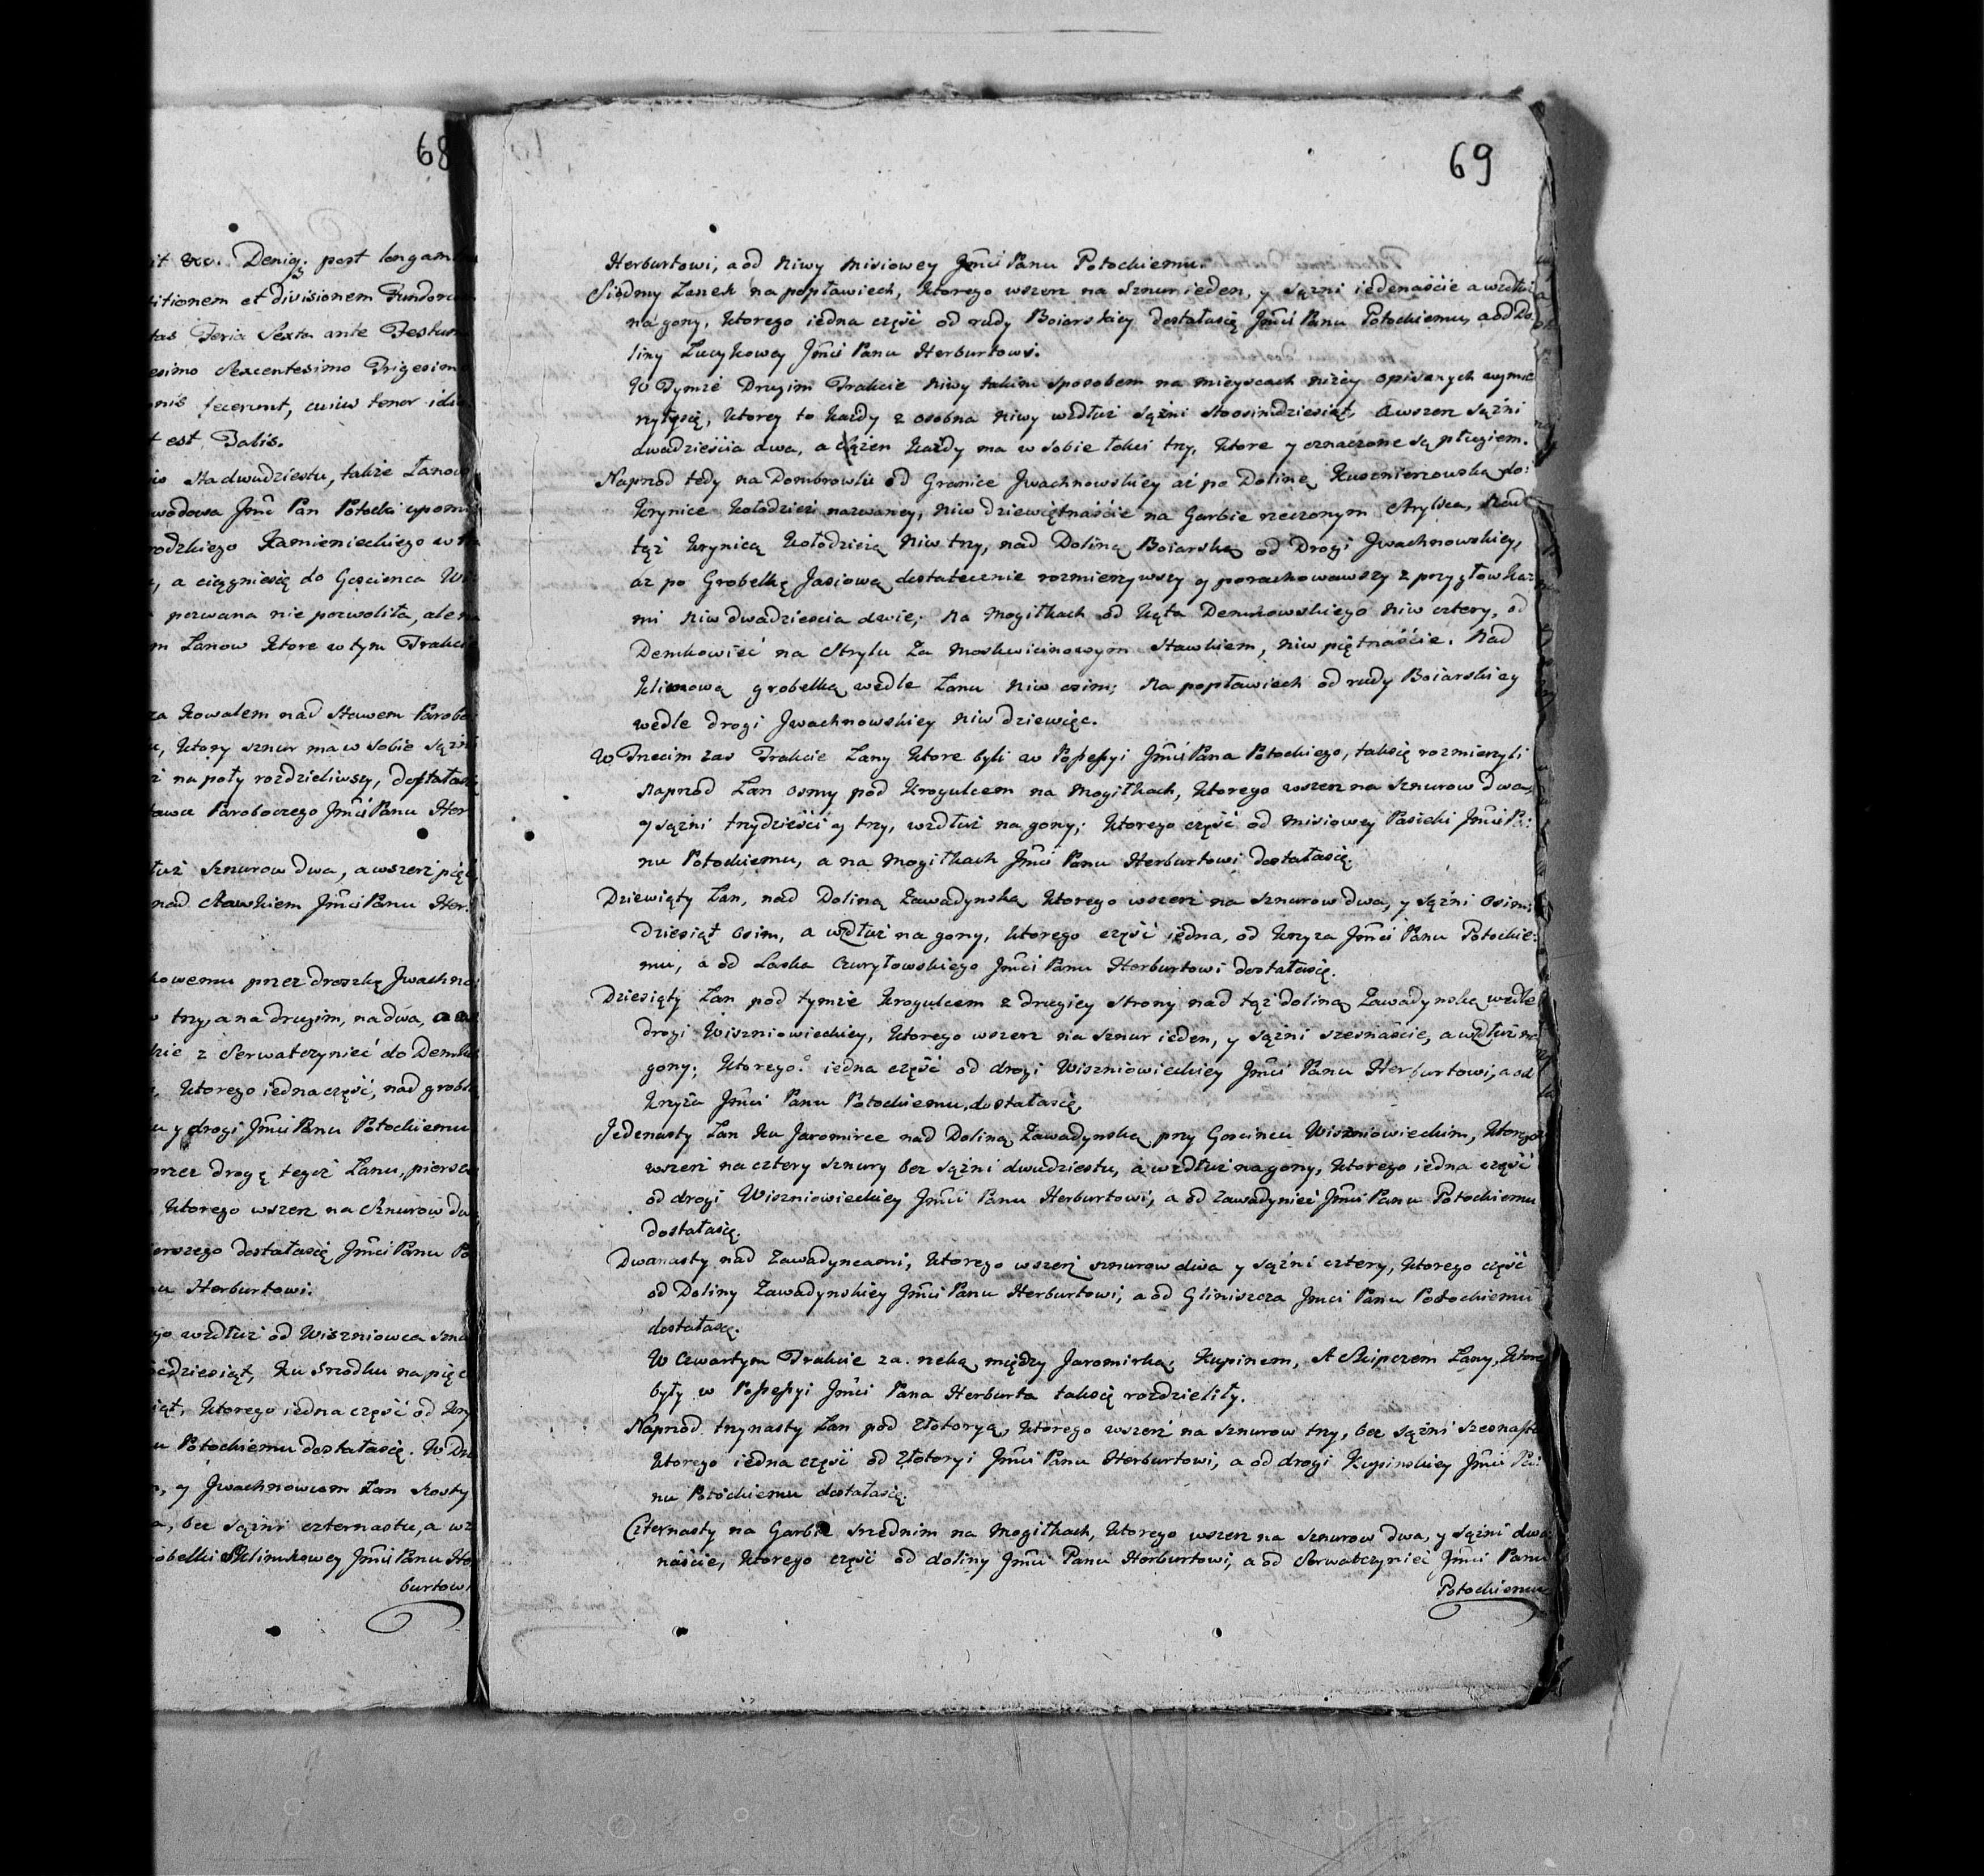 68
it &c. Deniq; post longam
titionem et divisionem Fundorum
tas Feria Sexta ante Festum
esimo Sexcentesimo Trigesimo
onis fecerunt, cuius tenor idio
t est Talis.
na dwudziestu, także Łanow
wodowa Jmć Pan Potocki upomi
rodzkiego Kamienieckiego w
, a ciągniesię do Goscienca Wi
pozwana nie pozwoliła, ale na
m Łanow ktore w tym Trakcie
za Kowalem nad Stawem Parobo
u, ktory sznur ma w sobie sążni
ż na poły rozdzieliwszy, dostałasię
tawu Paroboczego Jmći Panu Her
łuż sznurow dwa, a wszerz pięć
nad Stawkiem Jmći Panu Her:
kowemu przez droszkę Jwachno
w try, a na drugim, na dwa, a
dzie z Serwatczyniec do Demk
, ktorego iedna część, nad grobla
u y drogi Jmći Panu Potockiemu
przez drogę tegoż Łanu, piersze
ktorego wszerz na Sznurow dwa
ierszego dostałasię Jmći Panu Po
nu Herburtowi.
go wzdłuż od Wiszniowca sznu
śćdziesiąt, ku srzodku na pięc
iąt, ktorego iedna część od kry
u Potockiemu dostałasię. W Dru
, y Jwachnowcem Łan szosty
a, bez sążni czternastu, a wz
robelki Klimkowey Jmći Panu Her
burtowi
69
Herburtowi, a od Niwy Misiowey Jmći Panu Potockiemu.
Siodmy Łanek na popławiech, ktorego wszerz na sznur ieden, y sążni iedenaście a wzdłuż
na gony, ktorego iedna część od rudy Boiarskiey dostałasię Jmći Panu Potockiemu, a od Do
liny Łucykowey Jmći Panu Herburtowi.
W Tymże Drugim Trakcie Niwy takim sposobem na mieyscach niżey opisanych wymie
rzyłysię, ktorey to każdy z osobna Niwy wzdłuż sążni stoosimdziesiąt, a wszerz sążni
dwadzieścia dwa, a sążen każdy ma w sobie łokci try, ktore y oznaczone są pługiem.
Naprzod tedy na Dombrowki od Granice Jwachnowskiey aż po Dolinę Kusznierzowską do:
krynice kołodzieżi nazwaney, niw dziewiętnaście na Garbie rzeczonym Strylca, nad
tąż krynicą kołodzieżą Niw try, nad Doliną Boiarską od Drogi Jwachnowskiey,
aż po Grobelkę Jasiową dostatecznie rozmierzywszy y porachowawszy z przygłowka:
mi Niw dwadziescia dwie; Na Mogiłkach od kąta Demkowskiego Niw cztery, od
Demkowiec na Stryku Za Moskwicinowym Stawkiem, Niw piętnaście. Nad
klimową grobelką wedle Łanu Niw osim; Na popławiech od rudy Boiarskiey
wedle drogi Jwachnowskiey Niw dziewięc.
W Trzecim zas Trakcie Łany ktore byli w Possessyi Jmći Pana Potockiego, taksię rozmierzyli
Naprzod Łan osmy pod krogulcem na Mogiłkach, ktorego wszerz na sznurow dwa,
y sążni trydzieści y try, wzdłuż na gony; ktorego część od Misiowey Pasieki Jmći Pa:
nu Potockiemu, a na Mogiłkach Jmći Panu Herburtowi dostałasię.
Dziewiąty Łan, nad Doliną Zawadynską ktorego wszerz na sznurow dwa, y sążni Osim:
dziesiąt osim, a wzdłuż na gony, ktorego część iedna, od kryża Jmći Panu Potockie:
mu, a od Laska Czuryłowskiego Jmći Panu Herburtowi dostałasię.
Dziesiąty Łan pod tymże krogulcem z drugiey strony nad tąż doliną Zawadynską wedle
drogi Wiszniowieckiey, ktorego wszerz na sznur ieden, y sążni szesnaście, a wzdłuż na
gony; ktorego iedna część od drogi Wiszniowieckiey Jmći Panu Herburtowi, a od
kryża Jmći Panu Potockiemu, dostałasię.
Jedenasty Łan ku Jaromirce nad Doliną Zawadynską przy Goscincu Wiszniowieckim, ktorego
wszerz na cztery sznury bez sążni dwudziestu, a wzdłuż na gony, ktorego iedna część
od drogi Wiszniowieckiey Jmći Panu Herburtowi, a od Zawadyniec Jmći Panu Potockiemu
dostałasię.
Dwanasty nad Zawadyncami; ktorego wszerz sznurow dwa y sążni cztery, ktorego część
od Doliny Zawadynskiey Jmći Panu Herburtowi, a od Gliniszcza Jmći Panu Potockiemu
dostałasię.
W Czwartym Trakcie za rzeką między Jaromirką, Kupinem, A Skipczem Łany, ktore
były w Possessyi Jmći Pana Herburta taksię rozdzieliły.
Naprzod trynasty Łan pod Złotoryą, ktorego wszerz na sznurow try, bez sążni szesnastu
ktorego iedna część od Złotoryi Jmći Panu Herburtowi, a od drogi Kupinskiey Jmći Pa:
nu Potockiemu dostałasię.
Czternasty na Garbie srzednim na Mogiłkach, ktorego wszerz na sznurow dwa, y sążni dwa
naście, ktorego część od doliny Jmći Panu Herburtowi, a od Serwatczyniec Jmći Panu
Potockiemu